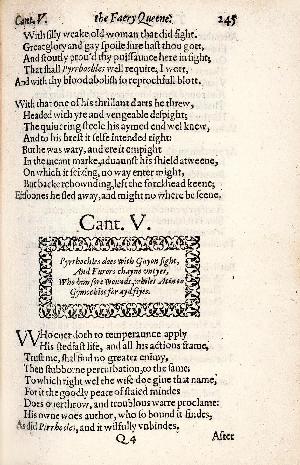 Cant. V. the Faery Queene. 245
With silly weake old woman that did fight.
Great glory and gay spoile sure hast thou gott,
And stoutly prou'd thy puissaunce here in sight;
That shall Pyrrhochles well requite, I wott,
And with thy blood abolish so reprochfull blott.
With that one of his thrillant darts he threw,
Headed with yre and vengeable despight;
The quiu'ring steele his aymed end wel knew,
And to his brest it selfe intended right:
But he was wary, and ere it empight
In the meant marke, aduaunst his shield atweene,
On which it seizing, no way enter might,
But backe rebownding, left the forckhead keene;
Eftsoones he fled away, and might no where be seene.
Cant. V.
Pyrrhochles does with Guyon fight,
And Furors chayne
Who him sore wounds, whiles Atin to
Cymochles for ayd flyes.
WHo euer doth to temperaunce apply
His stedfast life, and all his actions frame,
Trust me, shal find no greater enimy,
Then stubborne perturbation, to the same;
To which right wel the wise doe giue that name,
For it the goodly peace of staied mindes
Does ouerthrow, and troublous warre proclame:
His owne woes author, who so bound it findes,
As did Pirrhocles, and it wilfully vnbindes.
Q 4 After